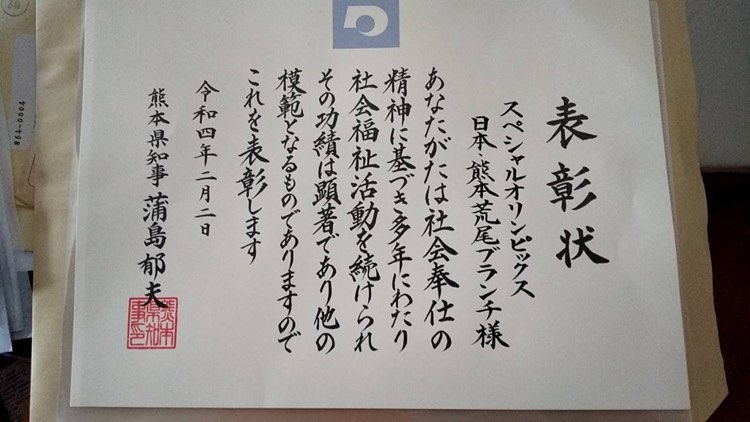 表彰状
スペシャルオリンピックス
日本・熊本荒尾ブランチ様
あなたがたは社会奉仕の
精神に基づき多年にわたり
社会福祉活動を続けられ
その功績は顕著であり他の
模範となるものでありますので
これを表彰します
令和四年二月二日
熊本県知事 蒲島郁夫
熊本県知事印
864-0004